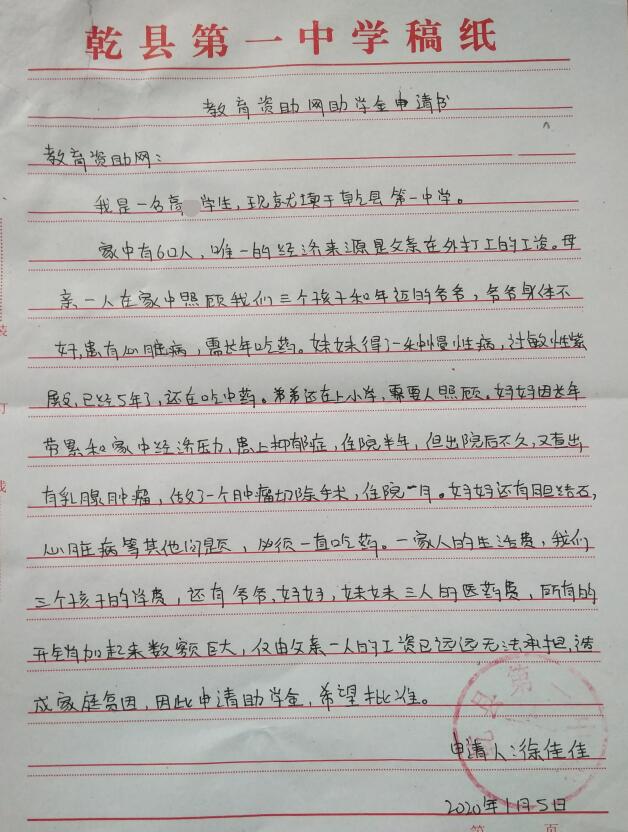 乾县第一中学稿纸
教育资助网助学金申请书
教育资助网：
我是一名高 学生，现就读于乾县第一中学。
家中有6口人，唯一的经济来源是父亲在外打工的工资。母
亲一人在家中照顾我们三个孩子和年迈的爷爷，爷爷身体不
好，患有心脏病，需长年吃药。妹妹得了一种慢性病，过敏性紫
癜，已经5年了，还在吃中药。弟弟还在上小学，需要人照顾。妈妈因长年
劳累和家中经济压力，患上抑郁症，住院半年，但出院后不久，又查出
有乳腺肿瘤，做了一个肿瘤切除手术，住院一月。妈妈还有胆结石，
心脏病等其他问题，必须一直吃药。一家人的生活费，我们
三个孩子的学费，还有爷爷、妈妈、妹妹三人的医药费，所有的
开销加起来数额巨大，仅由父亲一人的工资已远远无法承担，造
成家庭贫困，因此申请助学金，希望批准。
申请人：徐佳佳
2020年1月5日
第 页
装
订
线
县第一